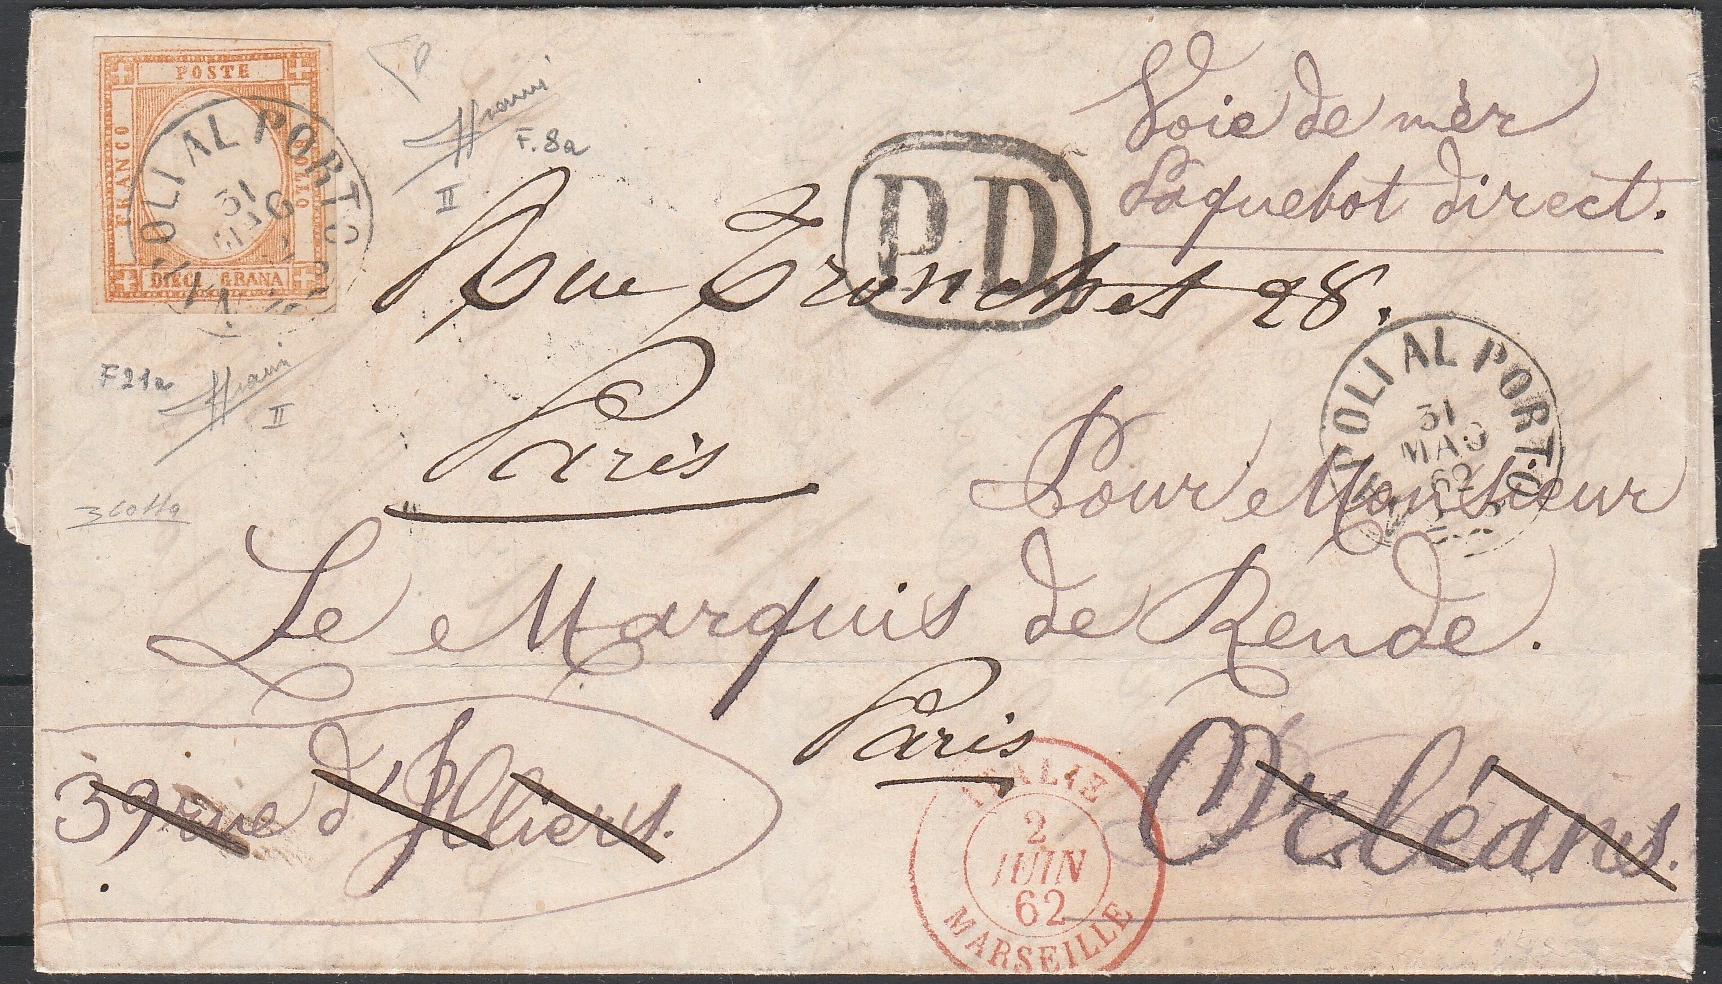 POSTE
FRANCO
OTTO
DIECI GRANA
NAPOLI AL PORTO
31
MAG
F.8a
II
Voie de mèr
Paquebot direct.
P.D.
Rue Tronchet 28.
Paris
NAPOLI AL PORTO
31
MAG
62
F21a
II
Pour Monsieur
Le Marquis de Rende.
Paris
39 rue d'Illiers.
Orléans.
ITALIE
2
JUIN
62
MARSEILLE